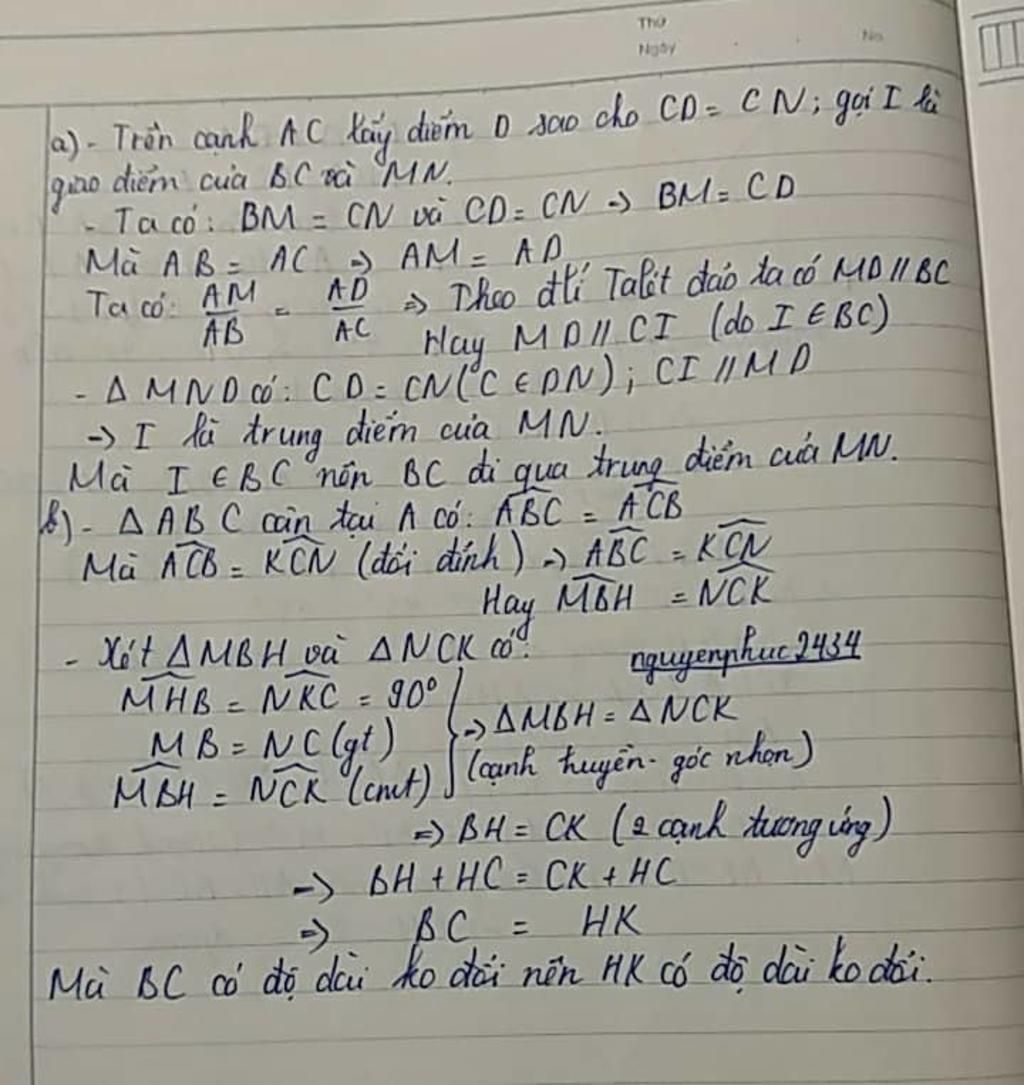 Thứ
Ngày No
a) - Trên cạnh AC lấy điểm D sao cho CD = CN; gọi I là
giao điểm của BC và MN.
- Ta có: BM = CN và CD = CN → BM = CD
Mà AB = AC ⇒ AM = AD
Ta có: AM/AB = AD/AC ⇒ Theo đlí Talét đảo ta có MD // BC
Hay MD // CI (do I ∈ BC)
- Δ MND có: CD = CN (C ∈ DN); CI // MD
→ I là trung điểm của MN.
Mà I ∈ BC nên BC đi qua trung điểm của MN.
b) - Δ ABC cân tại A có: \widehat{ABC} = \widehat{ACB}
Mà \widehat{ACB} = \widehat{KCN} (đối đỉnh) → \widehat{ABC} = \widehat{KCN}
Hay \widehat{MBH} = \widehat{NCK}
- Xét ΔMBH và ΔNCK có:
nguyenphuc2434
\widehat{MHB} = \widehat{NKC} = 90°
MB = NC (gt)
\widehat{MBH} = \widehat{NCK} (cmt)
⇒ ΔMBH = ΔNCK
(cạnh huyền - góc nhọn)
⇒ BH = CK (2 cạnh tương ứng)
→ BH + HC = CK + HC
⇒ BC = HK
Mà BC có độ dài ko đổi nên HK có độ dài ko đổi.